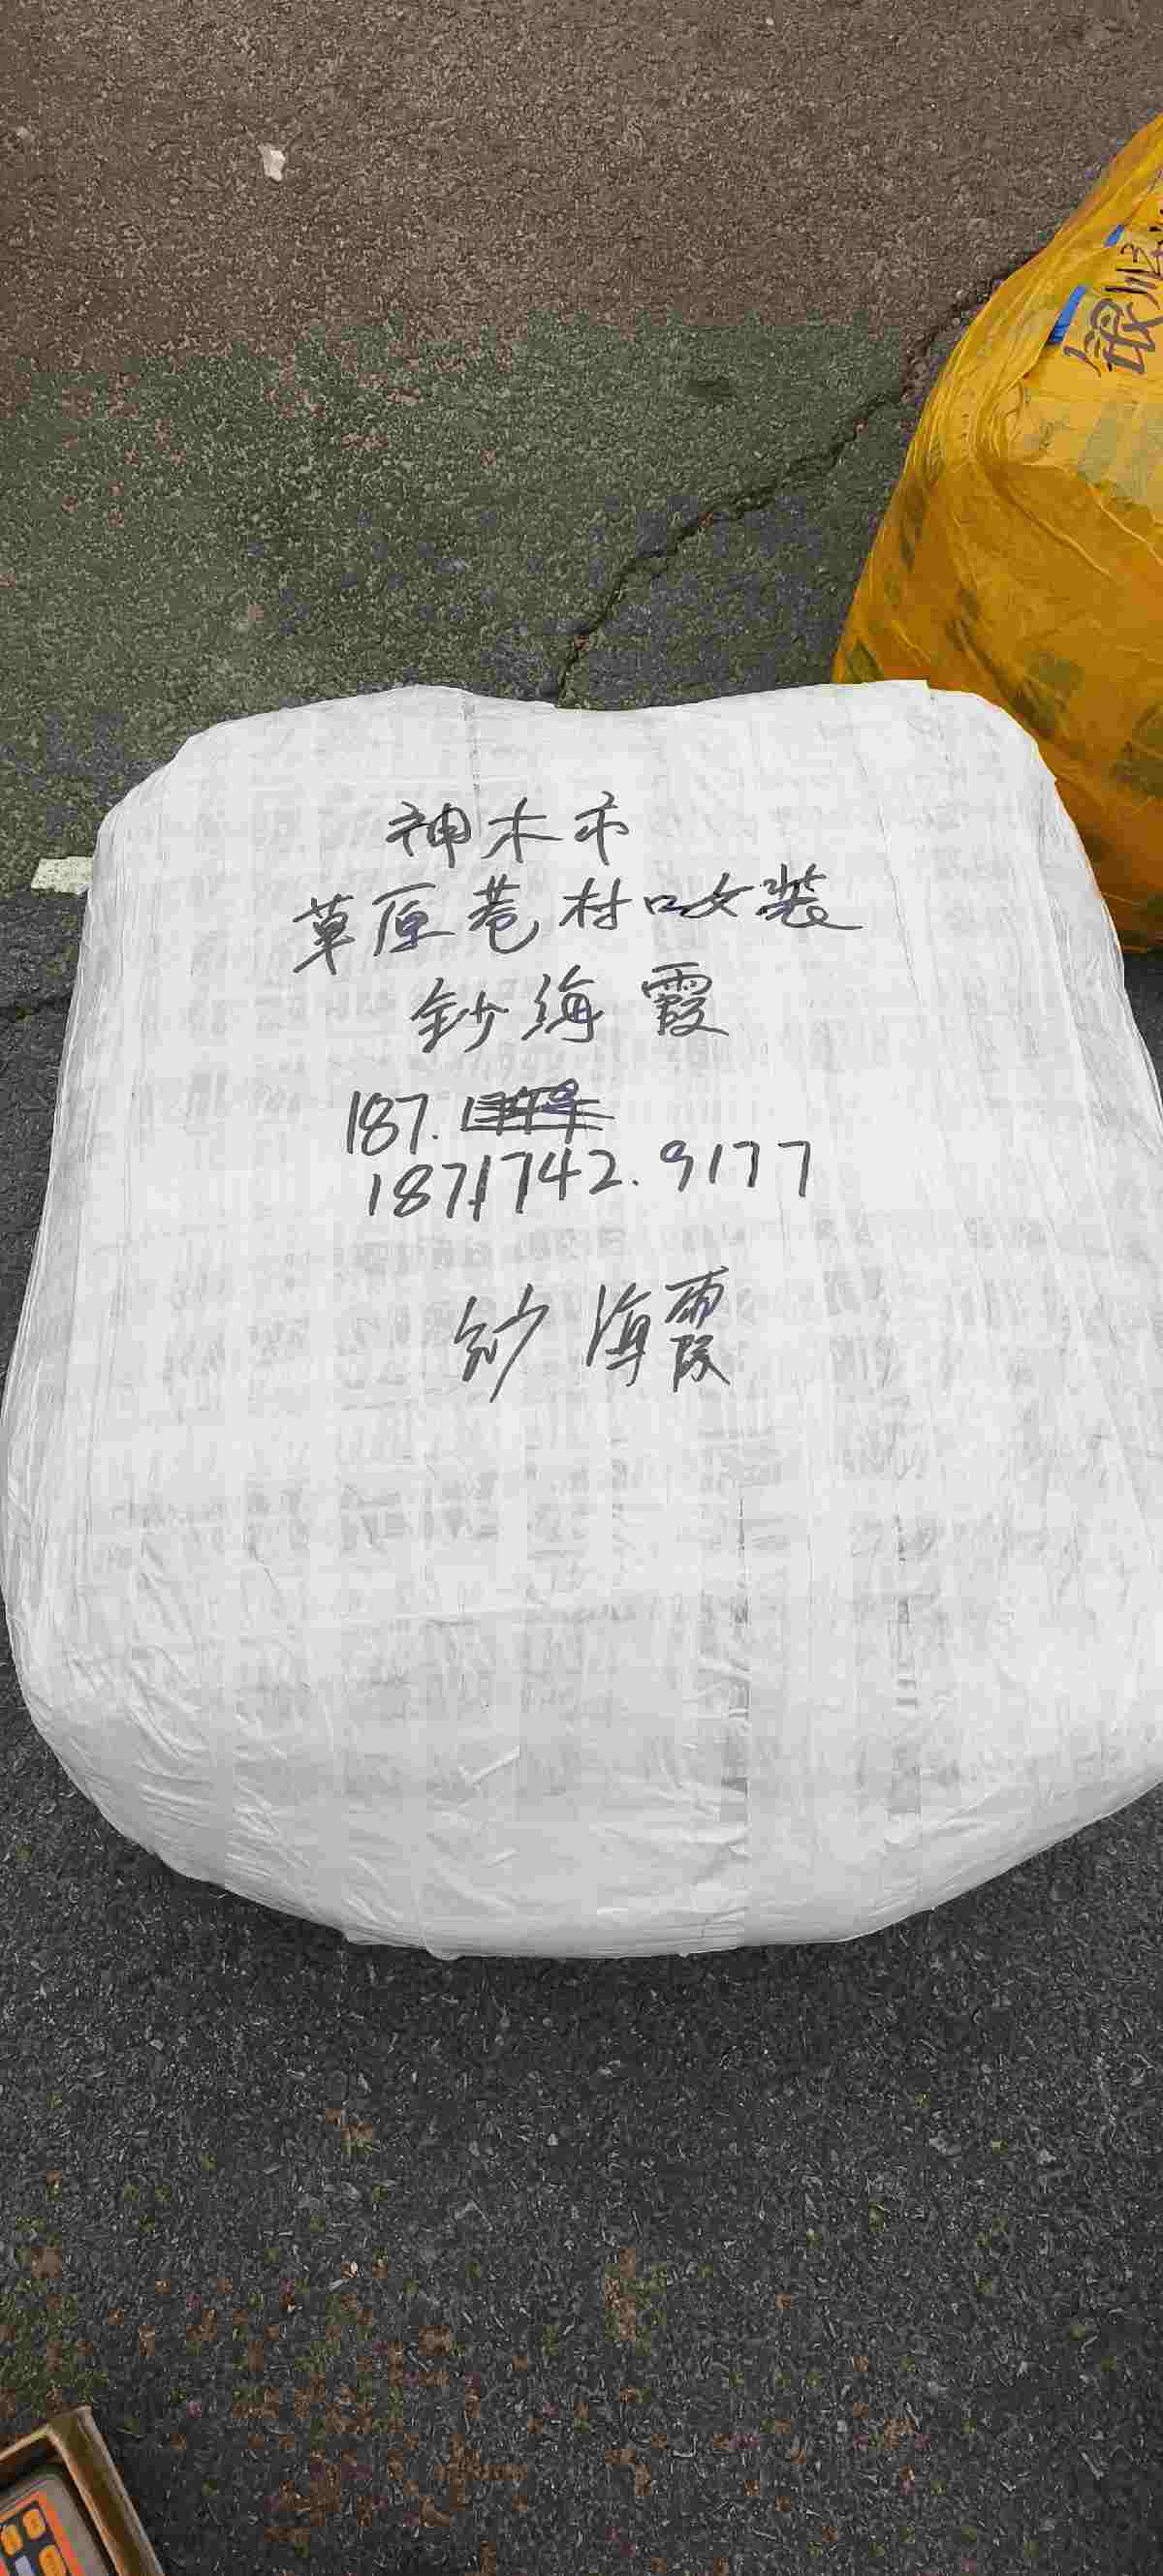 神木市
草原巷村口女装
钞海霞
187.
187.1742.9177
钞海霞
银川